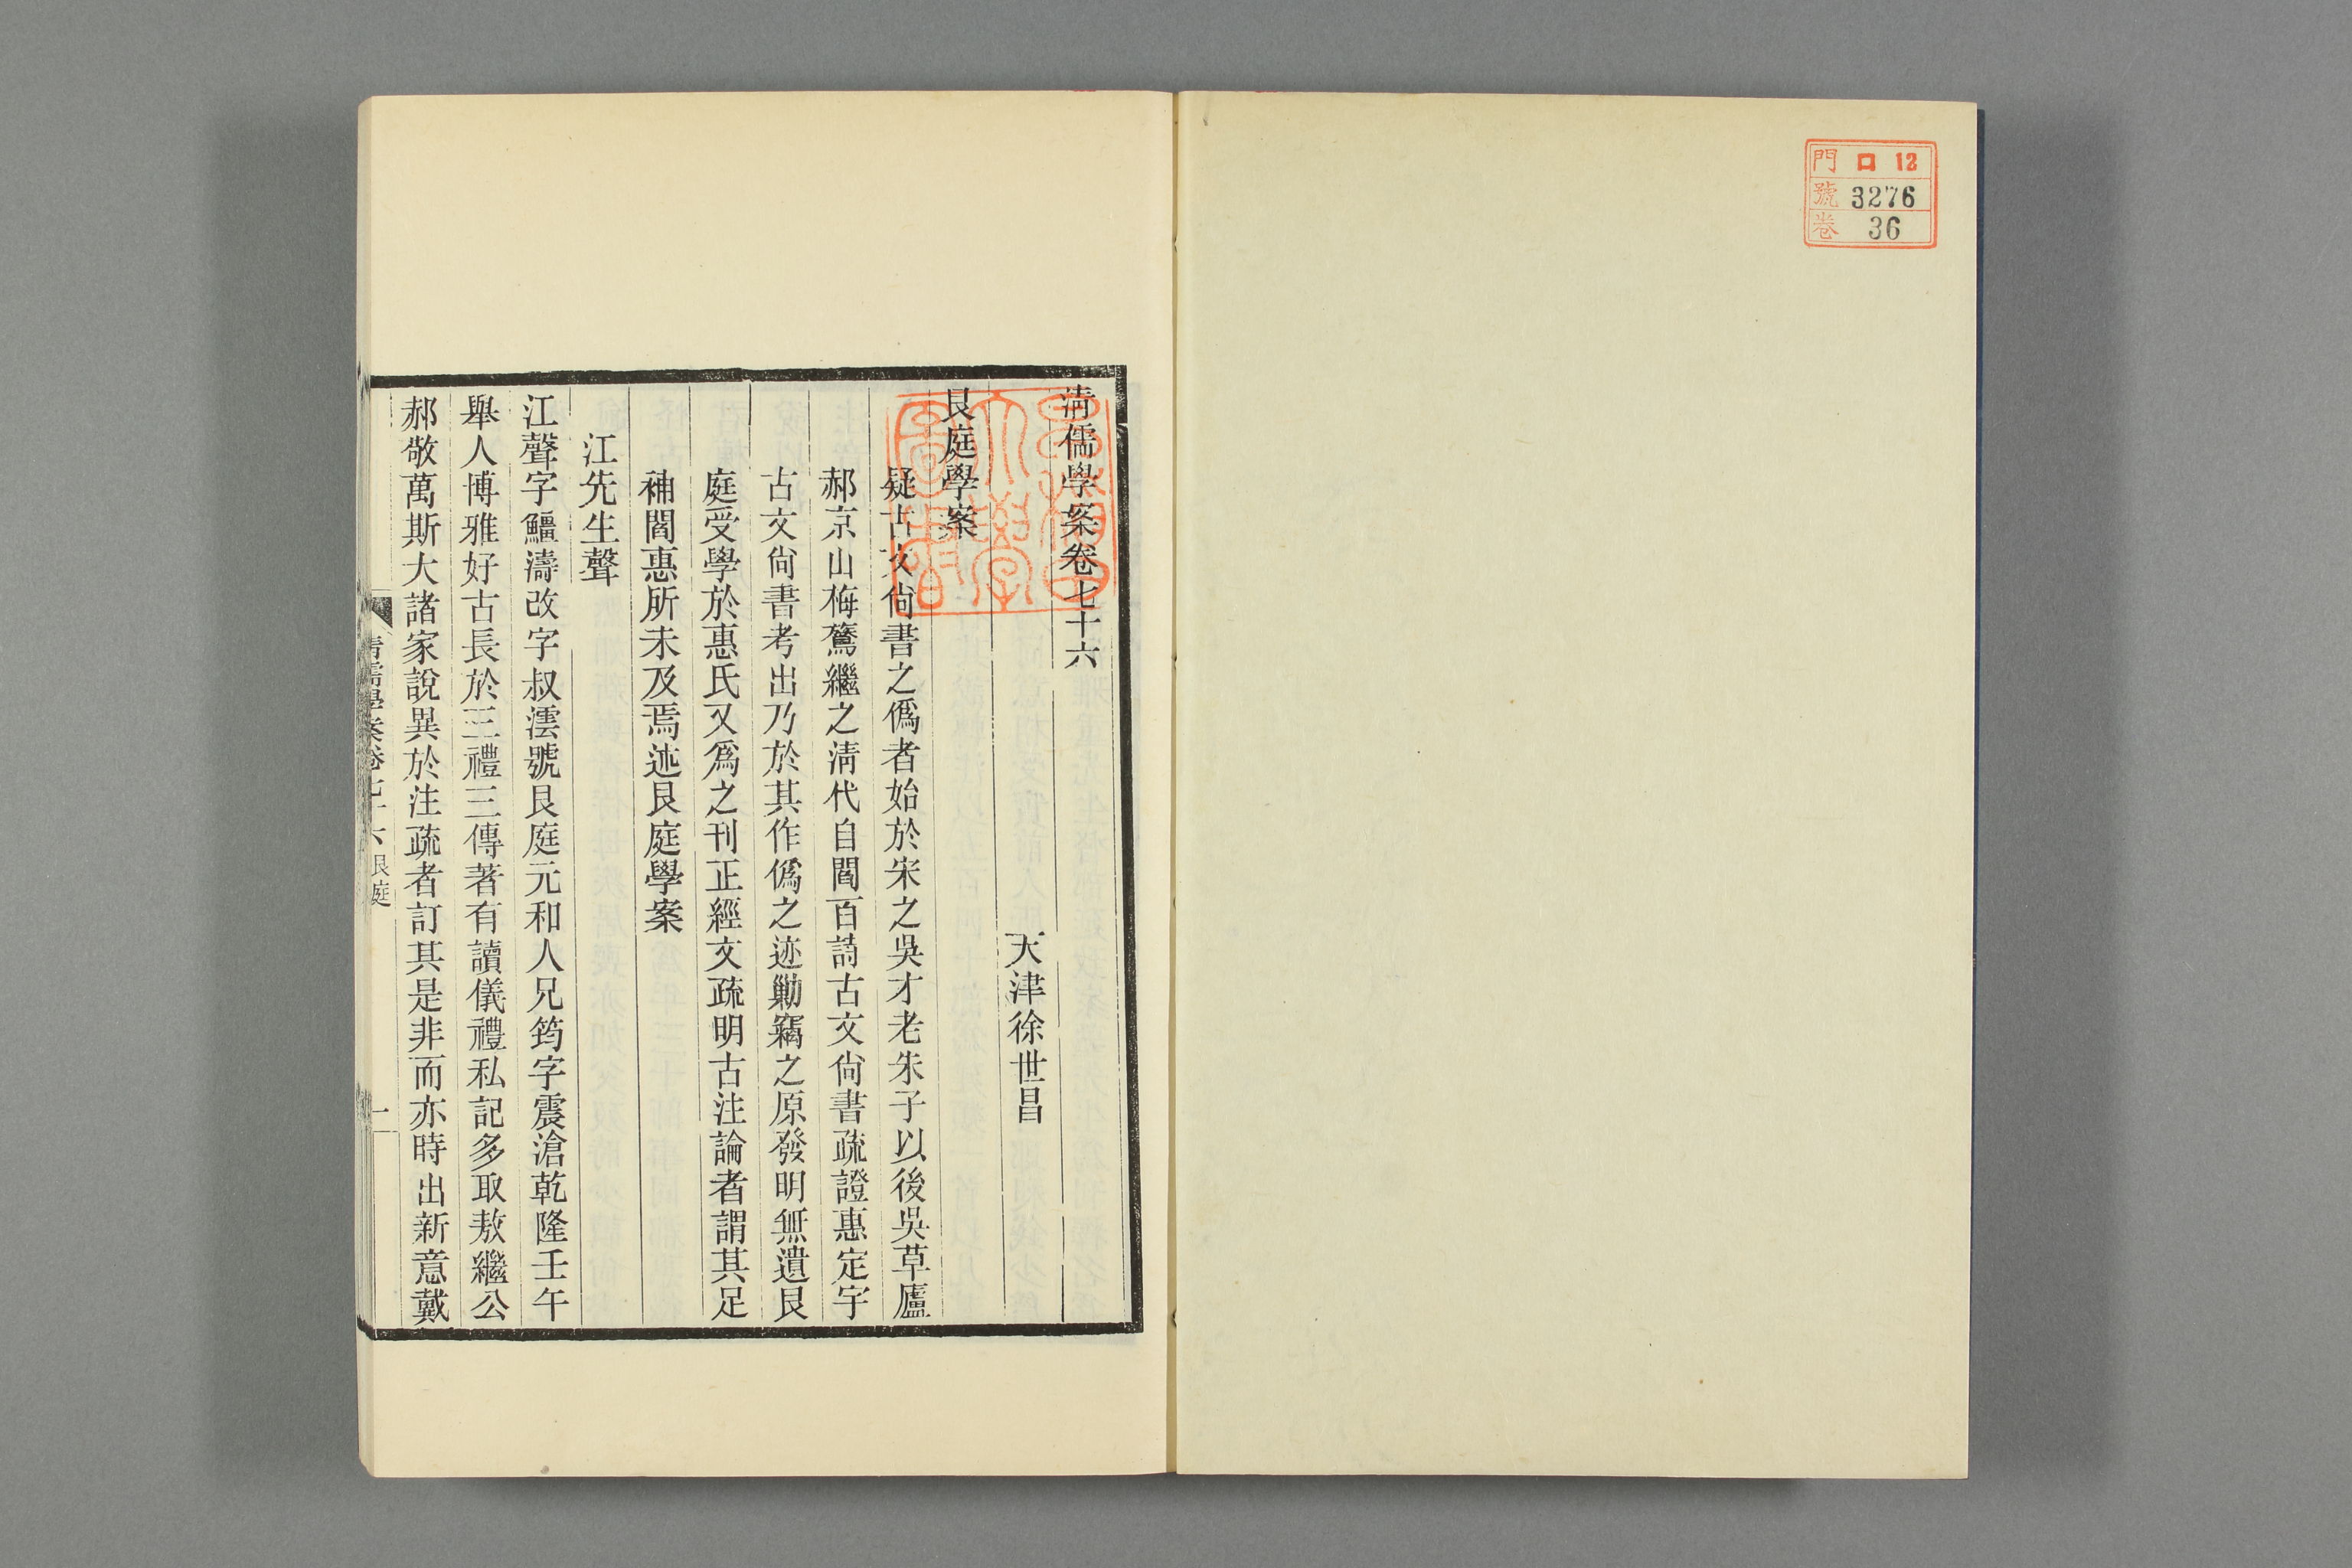 門 ロ 12
號 3276
卷 36
清儒學案卷七十六
天津徐世昌
艮庭學案
疑古文尙書之僞者始於宋之吳才老朱子以後吳草廬
郝京山梅鷟繼之清代自閻百詩古文尙書疏證惠定宇
古文尙書考出乃於其作僞之迹勦竊之原發明無遺艮
庭受學於惠氏又爲之刊正經文疏明古注論者謂其足
補閻惠所未及焉述艮庭學案
江先生聲
江聲字鱷濤改字叔澐號艮庭元和人兄筠字震滄乾隆壬午
舉人博雅好古長於三禮三傳著有讀儀禮私記多取敖繼公
郝敬萬斯大諸家說異於注疏者訂其是非而亦時出新意戴
清儒學案卷七十六 艮庭
一